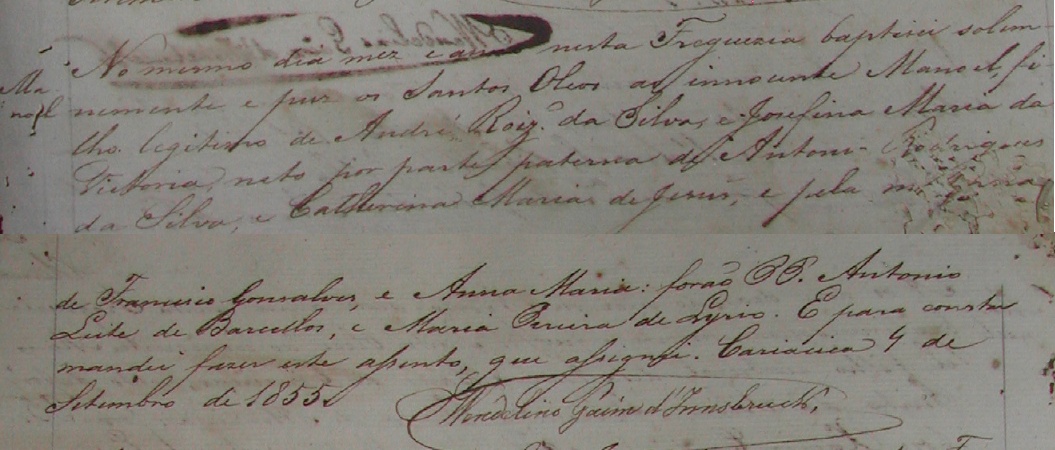 No mesmo dia mez e anno nesta Freguezia baptisei solem-
Ma-
noel
nemente e puz os Santos Oleos ao innocente Manoel, fi-
lho legitimo de André Roiz. da Silva, e Josefina Maria da
Victoria, neto por parte paterna de Antonio Rodrigues
da Silva, e Catherina Maria de Jesus, e pela materna
de Francisco Gonsalves, e Anna Maria: forão PP. Antonio
Leite de Barcellos, e Maria Pereira de Lyrio. E para constar
mandei fazer este assento, que assignei. Cariacica 4 de
Setembro de 1855.
Wendelino Gaim d'Innsbruck,